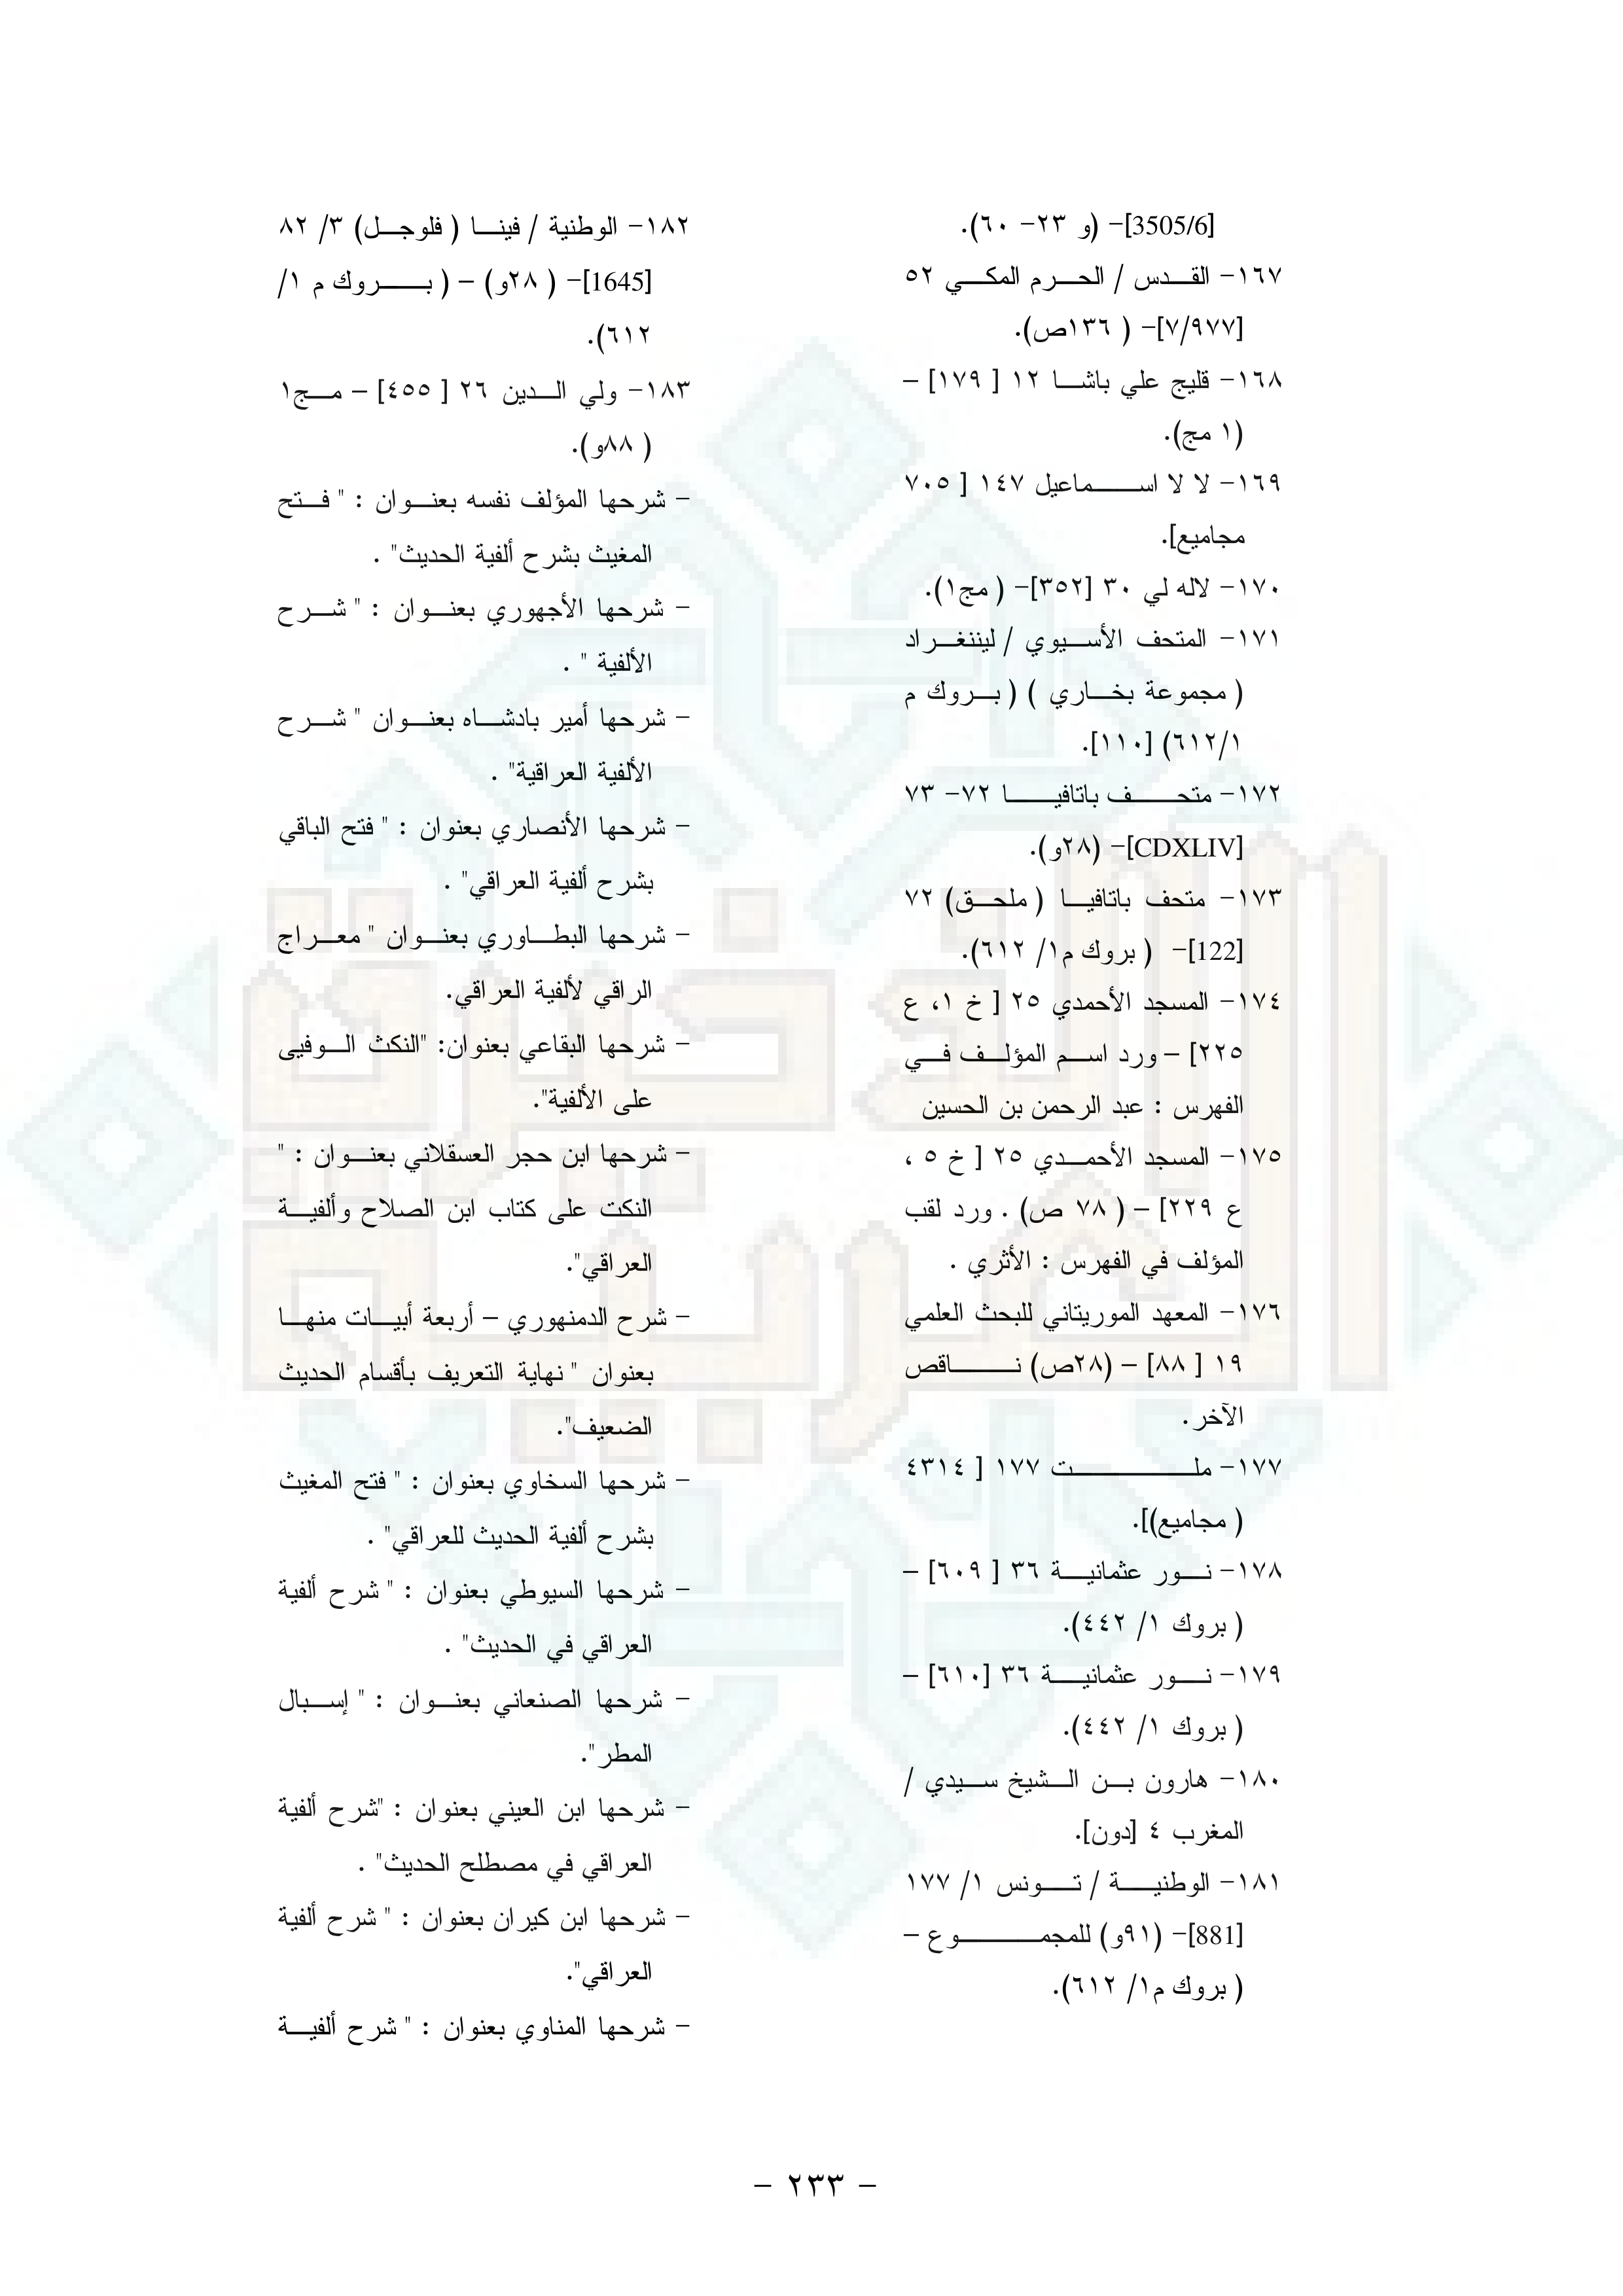 [3505/6]- (و ٢٣- ٦٠).
١٦٧- القدس / الحرم المكي ٥٢
[٧/٩٧٧]- ( ١٣٦ص).
١٦٨- قليج علي باشا ١٢ [ ١٧٩] –
(١ مج).
١٦٩- لا لا اسماعيل ١٤٧ [ ٧٠٥
مجاميع].
١٧٠- لاله لي ٣٠ [٣٥٢]- ( مج١).
١٧١- المتحف الأسيوي / ليننغراد
( مجموعة بخاري ) ( بروك م
٦١٢/١) [١١٠].
١٧٢- متحف باتافيا ٧٢- ٧٣
[CDXLIV]- (٢٨و).
١٧٣- متحف باتافيا ( ملحق) ٧٢
[122]- ( بروك م١/ ٦١٢).
١٧٤- المسجد الأحمدي ٢٥ [ خ ١، ع
٢٢٥] – ورد اسم المؤلف في
الفهرس : عبد الرحمن بن الحسين
١٧٥- المسجد الأحمدي ٢٥ [ خ ٥ ،
ع ٢٢٩] – ( ٧٨ ص) . ورد لقب
المؤلف في الفهرس : الأثري .
١٧٦- المعهد الموريتاني للبحث العلمي
١٩ [ ٨٨] – (٢٨ص) ناقص
الآخر.
١٧٧- ملت ١٧٧ [ ٤٣١٤
( مجاميع)].
١٧٨- نور عثمانية ٣٦ [ ٦٠٩] –
( بروك ١/ ٤٤٢).
١٧٩- نور عثمانية ٣٦ [٦١٠] –
( بروك ١/ ٤٤٢).
١٨٠- هارون بن الشيخ سيدي /
المغرب ٤ [دون].
١٨١- الوطنية / تونس ١/ ١٧٧
[881]- (٩١و) للمجموع –
( بروك م١/ ٦١٢).
١٨٢- الوطنية / فينا ( فلوجل) ٣/ ٨٢
[1645]- ( ٢٨و) – ( بروك م ١/
٦١٢).
١٨٣- ولي الدين ٢٦ [ ٤٥٥] – مج١
( ٨٨و).
- شرحها المؤلف نفسه بعنوان : " فتح
المغيث بشرح ألفية الحديث" .
- شرحها الأجهوري بعنوان : " شرح
الألفية " .
- شرحها أمير بادشاه بعنوان " شرح
الألفية العراقية" .
- شرحها الأنصاري بعنوان : " فتح الباقي
بشرح ألفية العراقي" .
- شرحها البطاوري بعنوان " معراج
الراقي لألفية العراقي.
- شرحها البقاعي بعنوان: "النكث الوفيى
على الألفية".
- شرحها ابن حجر العسقلاني بعنوان : "
النكت على كتاب ابن الصلاح وألفية
العراقي".
- شرح الدمنهوري – أربعة أبيات منها
بعنوان " نهاية التعريف بأقسام الحديث
الضعيف".
- شرحها السخاوي بعنوان : " فتح المغيث
بشرح ألفية الحديث للعراقي" .
- شرحها السيوطي بعنوان : " شرح ألفية
العراقي في الحديث" .
- شرحها الصنعاني بعنوان : " إسبال
المطر".
- شرحها ابن العيني بعنوان : "شرح ألفية
العراقي في مصطلح الحديث" .
- شرحها ابن كيران بعنوان : " شرح ألفية
العراقي".
- شرحها المناوي بعنوان : " شرح ألفية
- ٢٣٣ -